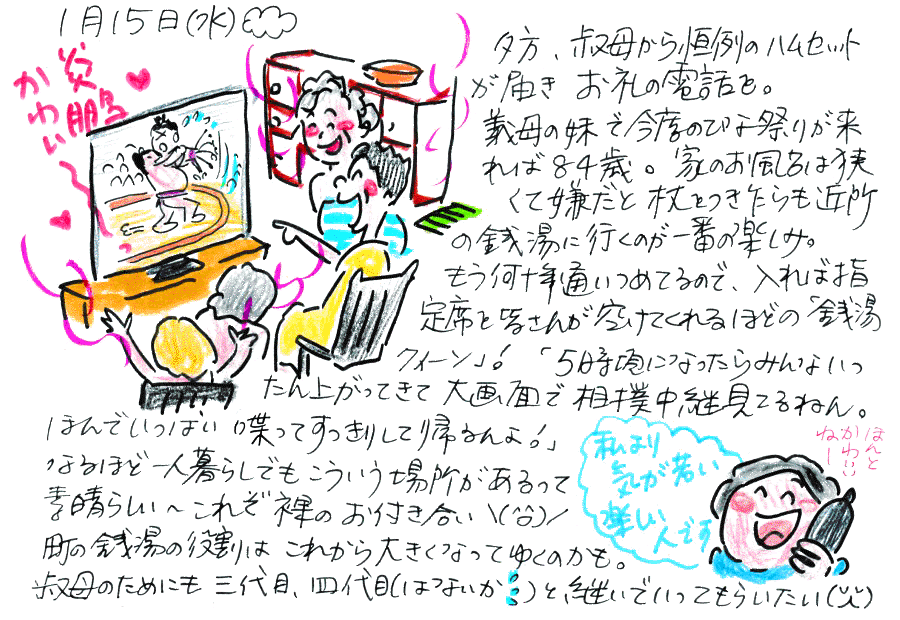 1月15日(水)
炎鵬
かわいい
夕方、叔母から恒例のハムセット
が届き お礼の電話を。
義母の妹で今度のひな祭りが来
れば84歳。家のお風呂は狭
くて嫌だと 杖をつきながらも近所
の銭湯に行くのが一番の楽しみ。
もう何十年通いつめてるので、入れば指
定席を皆さんが空けてくれるほどの「銭湯
クィーン」! 「5時頃になったらみんないっ
たん上がってきて 大画面で相撲中継見てるねん。
ほんでいっぱい喋ってすっきりして帰るんよ!」
なるほど一人暮らしでもこういう場所があるって
素晴らしい〜これぞ裸のお付き合い\(^o^)/
町の銭湯の役割は これから大きくなってゆくのかも。
叔母のためにも 三代目、四代目(はつよいか
)と継いでいってもらいたい(^^)
私より
気が若い
楽しい
人です
ほんと
かわいい
ねー